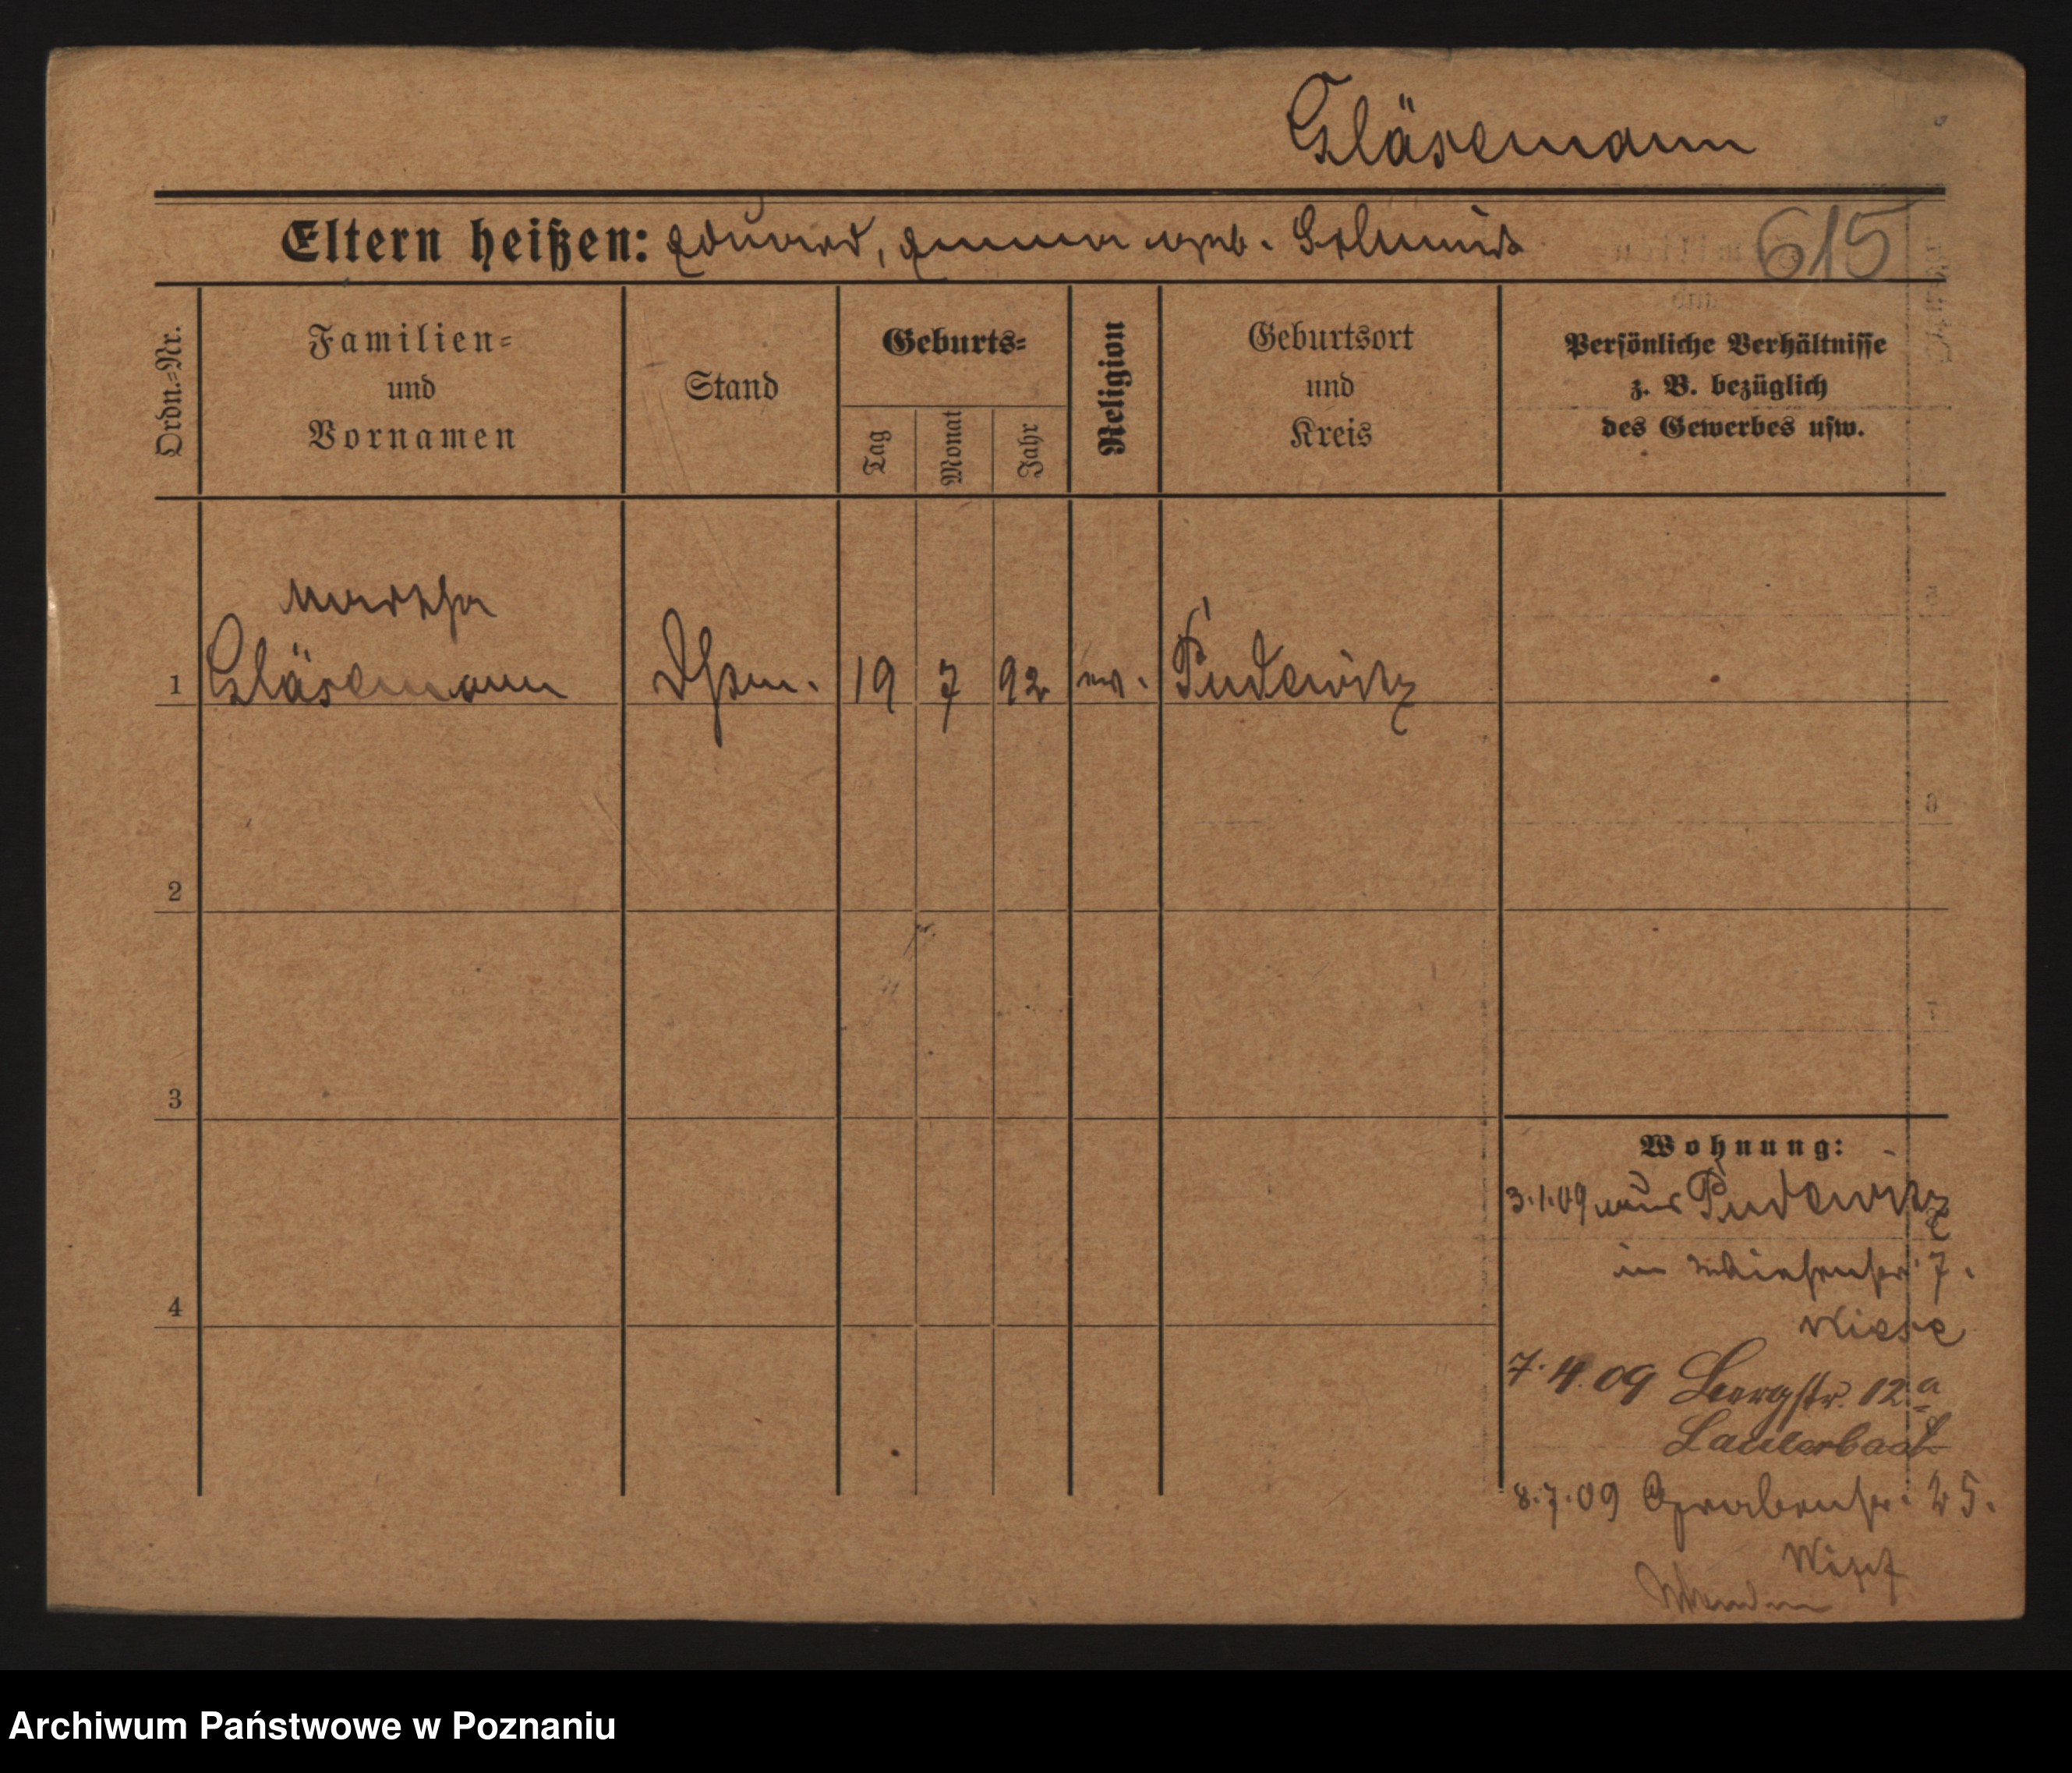 Gläsemann
Eltern heißen: Eduard, Emma geb. Schmidt
615
Ordn.-Nr.
Familien-
und
Vornamen
Stand
Geburts-
Tag
Monat
Jahr
Religion
Geburtsort
und
Kreis
Persönliche Verhältnisse
z. B. bezüglich
des Gewerbes usw.
Martha
1 Gläsemann 19 7 92 ev. Pudewitz
2
3
4
Wohnung:
3.1.09 aus Pudewitz
in Wiesenstr. 7.
Wiese
7.4.09 Bergstr. 12a
Lauterbach
8.7.09 Grabenstr. 25.
Wenden
Archiwum Państwowe w Poznaniu